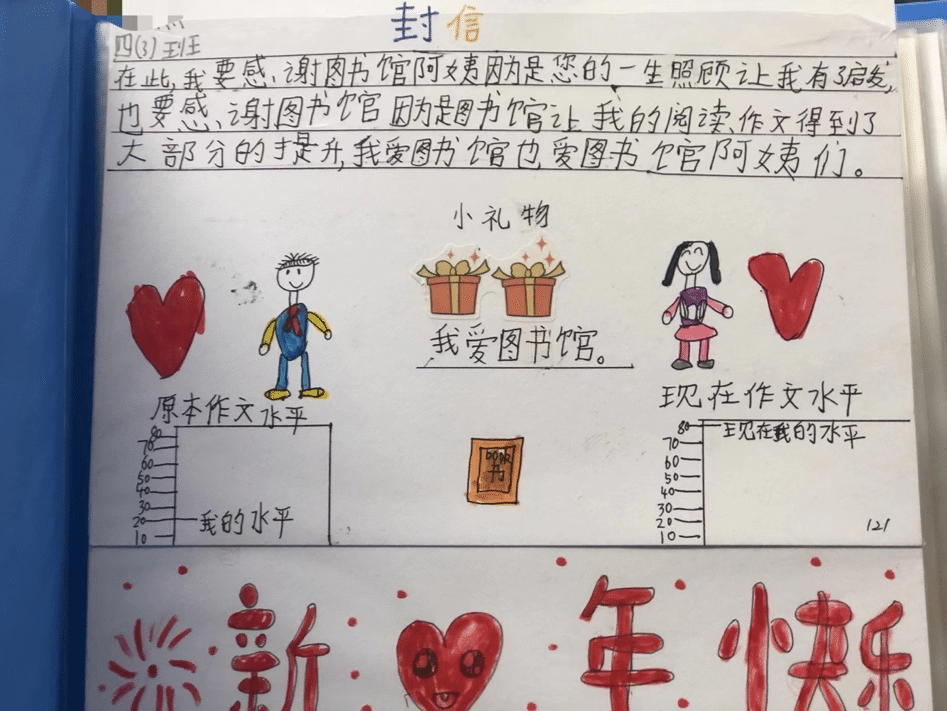 封信
四(3)班
在此,我要感谢图书馆阿姨因为是您的一生照顾让我有了启发,
也要感谢图书馆因为是图书馆让我的阅读、作文得到了
大部分的提升,我爱图书馆也爱图书馆阿姨们。
小礼物
我爱图书馆。
原本作文水平
80
70
60
50
40
30
20 我的水平
10
book
书
现在作文水平
80 现在我的水平
70
60
50
40
30
20
10
121
新年快乐